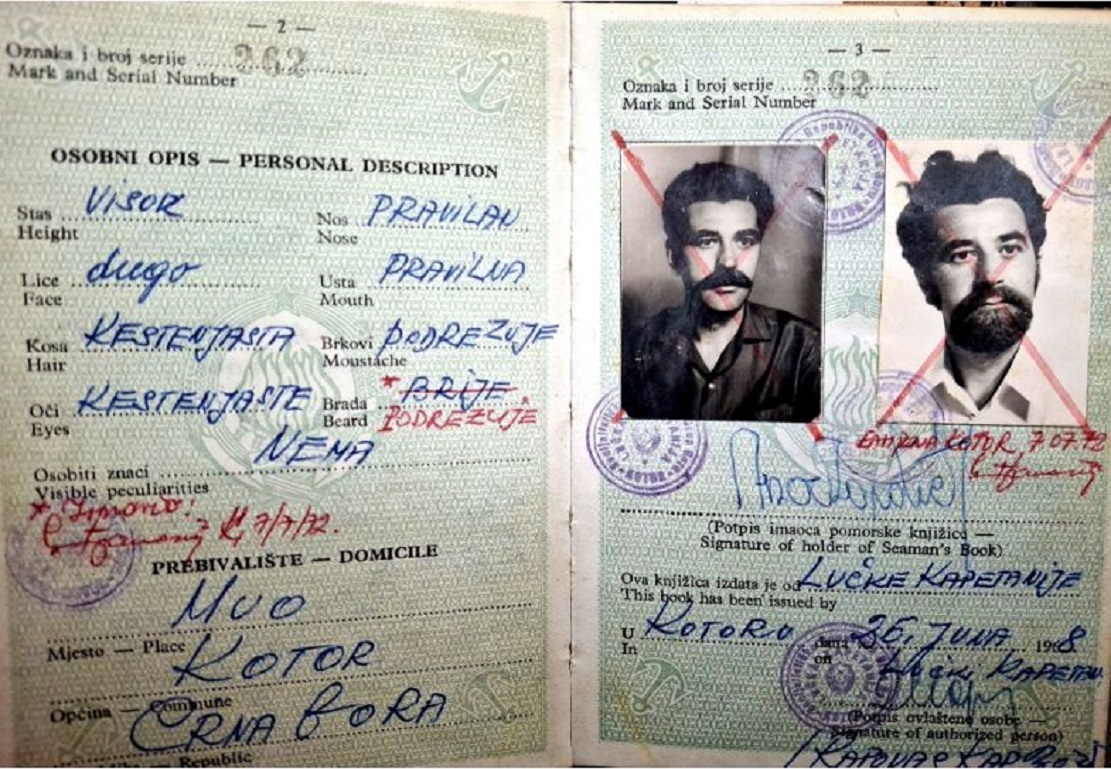 — 2 —
Oznaka i broj serije 262
Mark and Serial Number
OSOBNI OPIS — PERSONAL DESCRIPTION
Stas VISOK
Height
Nos PRAVILAN
Nose
Lice dugo
Face
Usta PRAVILNA
Mouth
Kosa KESTENJASTA
Hair
Brkovi PODREZUJE
Moustache
Oči KESTENJASTE
Eyes
Brada * BRIJE
Beard PODREZUJE
Osobiti znaci NEMA
Visible peculiarities
7/7/72.
PREBIVALIŠTE — DOMICILE
MUO
Mjesto — Place
KOTOR
Općina — Commune
CRNA GORA
Republic
— 3 —
Oznaka i broj serije 262
Mark and Serial Number
KOTOR, 7.07.72
(Potpis imaoca pomorske knjižice —
Signature of holder of Seaman's Book)
Ova knjižica izdata je od LUČKE KAPETANIJE
This book has been issued by
U KOTORU dana 26. JUNA 1968
In on
LUČKI KAPETAN
(Potpis ovlaštene osobe —
Signature of authorized person)